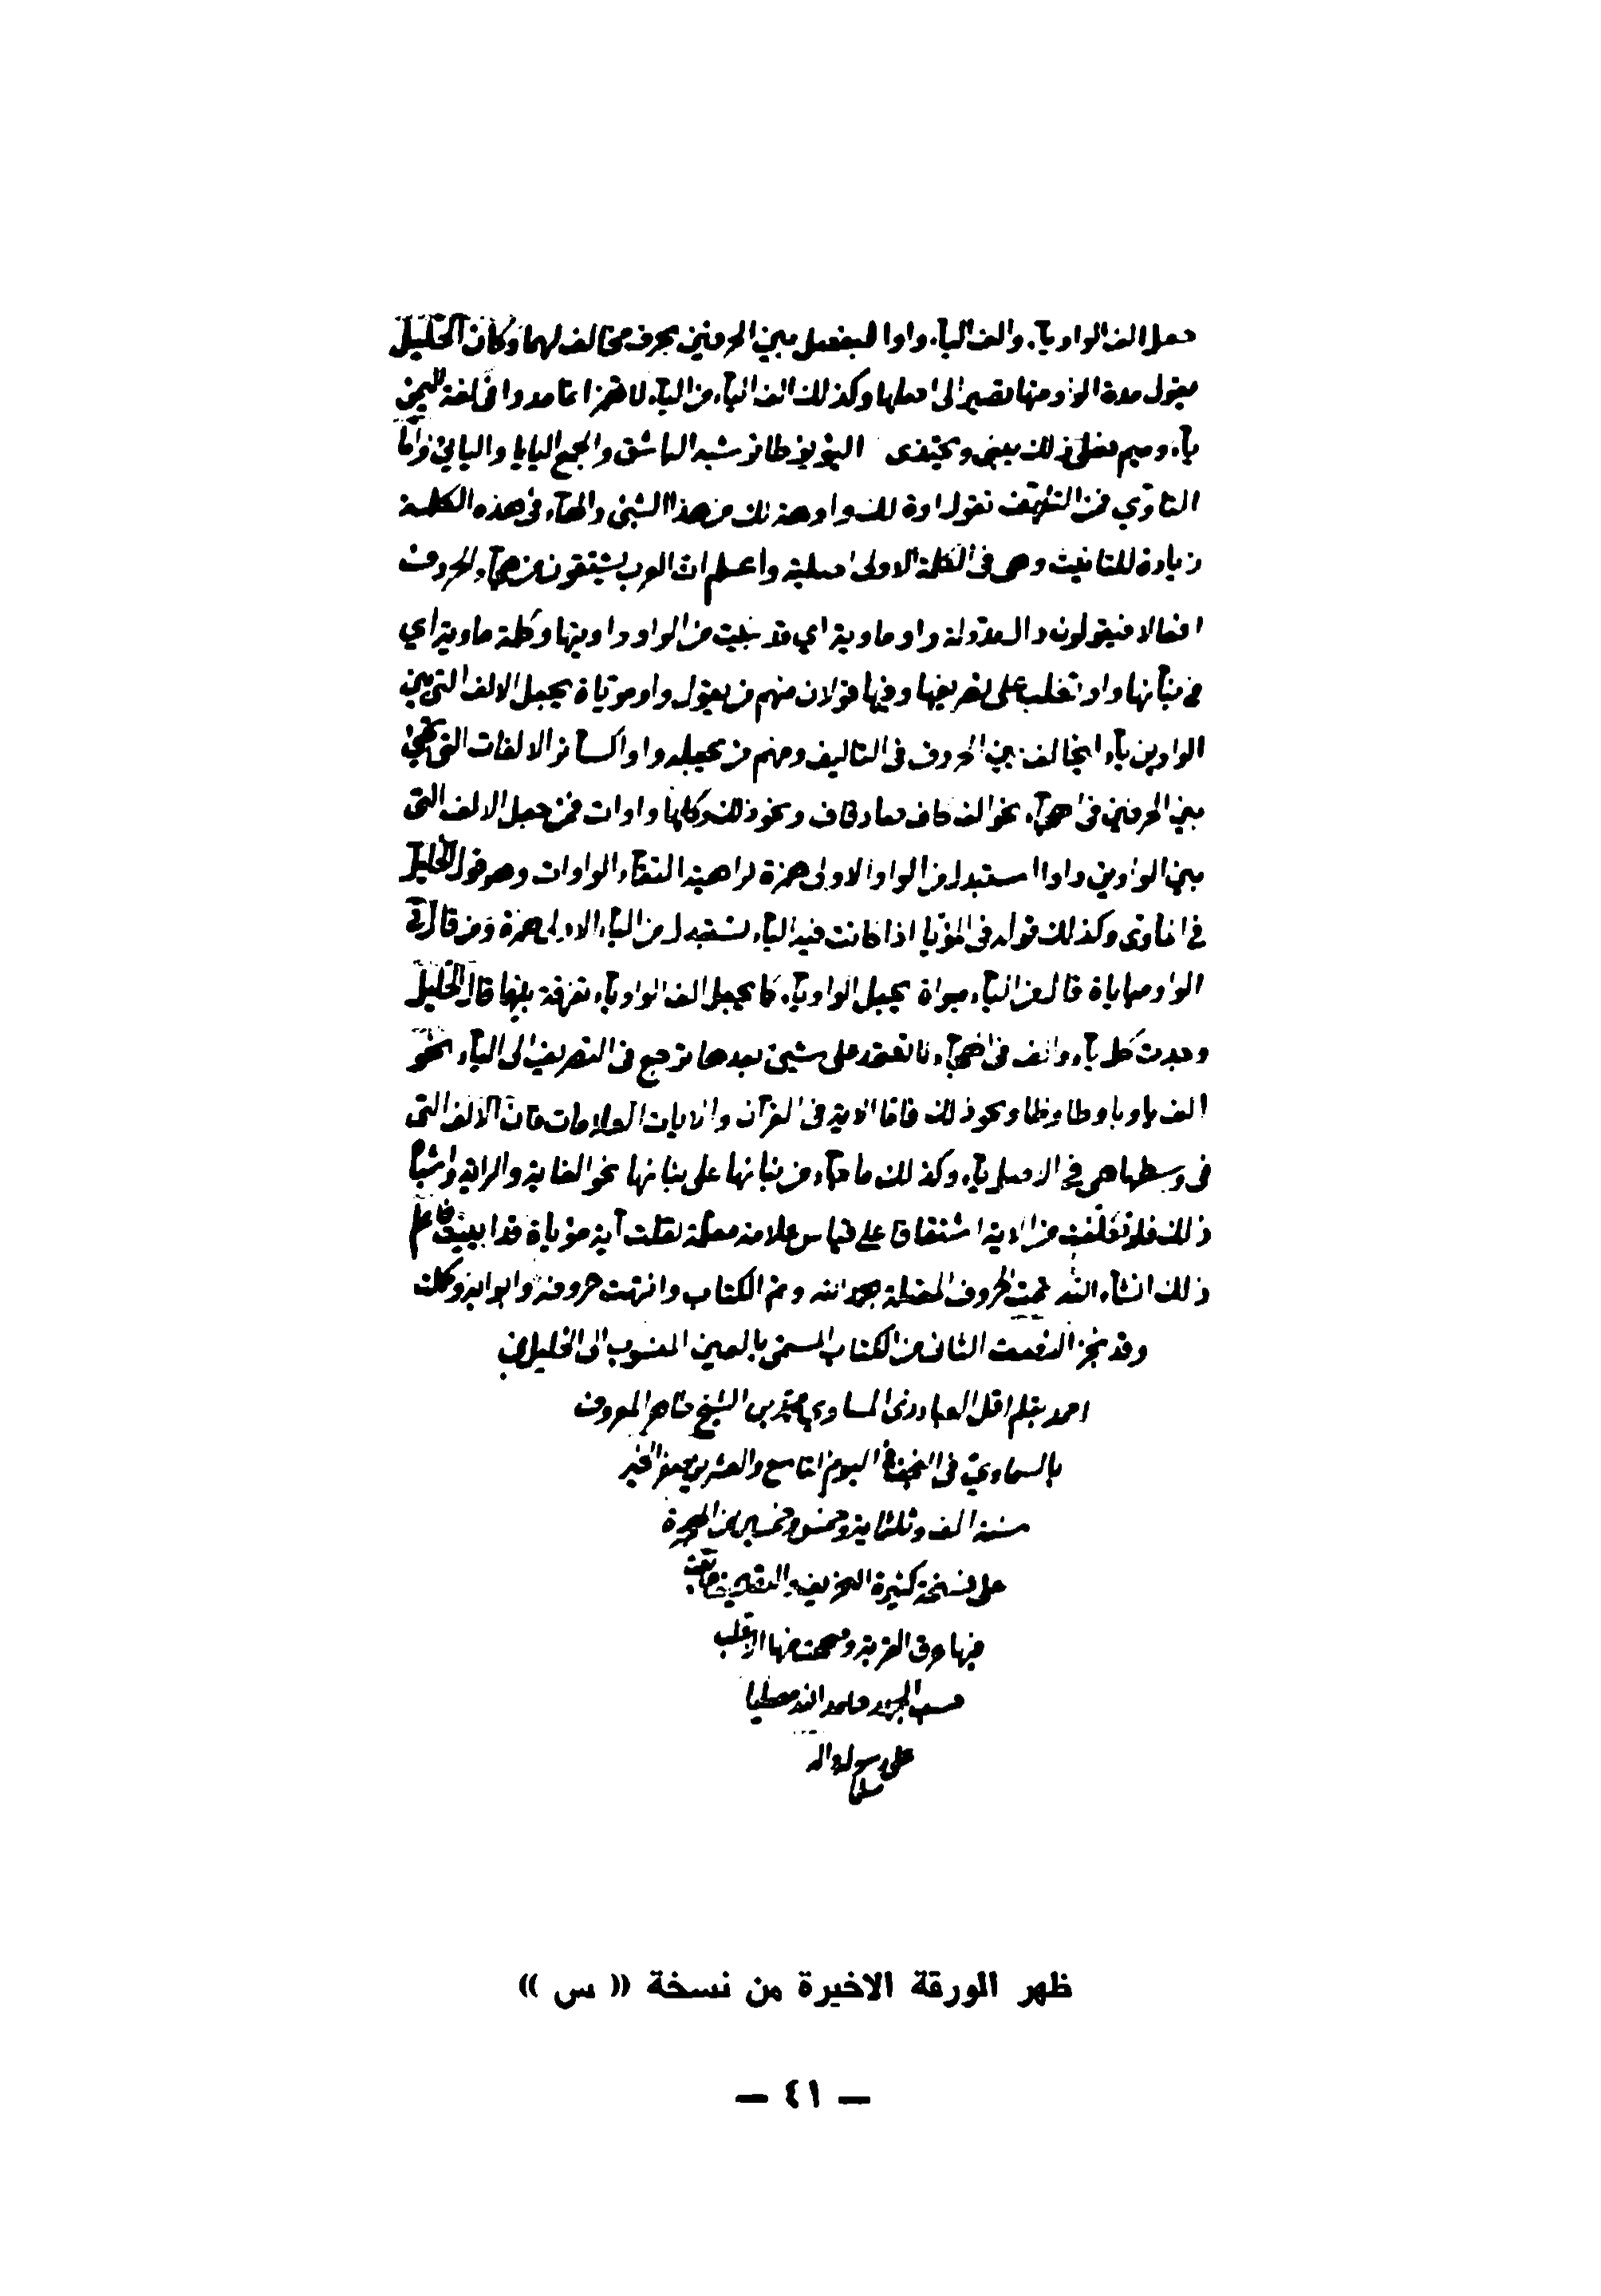 جعل الف الواو يآء والف اليآء واوا ليفصل بين الحرفين بحرف مخالف لهما وكان الخليل
يقول مدة الواو منها تصير الى اصلها وكذلك الف اليآء من اليآء لا همزا مامدوا في لغة اليمن
يآء وميم فعلى ذلك يبنى ويحتذى اليؤيؤ طائر شبه الباشق والجمع اليآيا واليائي واما
التأوّي فمن التلهّف تقول اوة لك واوهة لك من هذا الشيئ والهآء في هذه الكلمة
زيادة للتانيث وهي في الكلمة الاولى اصلية واعلم ان العرب يشتقون من هجآء الحروف
افعالا فيقولون دال مدوّلة واو ماوية اي قد بنيت من الواو واويتها وكلمة ماوية اي
في بنآئها واو تغلب على تصريفها وفيها قولان منهم من يقول واو موياة يجعل الالف التي بين
الواوين يآء ليخالف بين الحروف في التاليف ومنهم من يجعله واوا كسآئر الالفات التي تجئ
بين الحرفين في الهجآء نحو الف كاف صاد قاف ونحو ذلك وكلها واوات فمن جعل الالف التي
بين الواوين واوا استبدل من الواو الاولى همزة كراهية التقآء الواوات وهو قول الخليل
في اتأوّى وكذلك قوله في المؤيا اذا كانت فيه اليآء تستبدل من اليآء الاولى همزة ومن قال في
الواو موياة قال من اليآء ميواة يجعل الواو يآء كما يجعل الف الواو يآء تفرقة بينهما قال الخليل
وجدت كل يآء والف في الهجآء لا تعتمد على شيئ بعدها ترجع في التصريف الى اليآء نحو
الف يا وبا وطا وظا ونحو ذلك فاما الاية في القرآن والآيات العلامات فان الالف التي
في وسطها هي في الاصل يآء وكذلك ما جآء من بنائها على بنائها نحو الغاية والراية واشباه
ذلك فلو تكلّفت من الاية اشتقاقا على قياس علامة معلمة لقلت آية مؤياة قد ابييت فاعلم
ذلك انشآء الله تمت الحروف المعتلة بحمد الله وتم الكتاب وانتهت حروفه وابوابه وكملت
وقد نجز النصف الثاني من الكتاب المسمى بالعين المنسوب الى الخليل بن
احمد بقلم اقل العباد ذي المساوي محمد بن الشيخ طاهر المعروف
بالسماوي في النجف في اليوم التاسع والعشرين من صفر الخير
سنة الف وثلثماية وخمس وخمسين من الهجرة
على نسخة كثيرة التحريف والتصحيف
فيها عرق القربة وصححت منها الاغلب
حسب الجهد حامدا لله مصليا
على رسوله واله
مسلما
ظهر الورقة الاخيرة من نسخة (( س ))
— ٤١ —